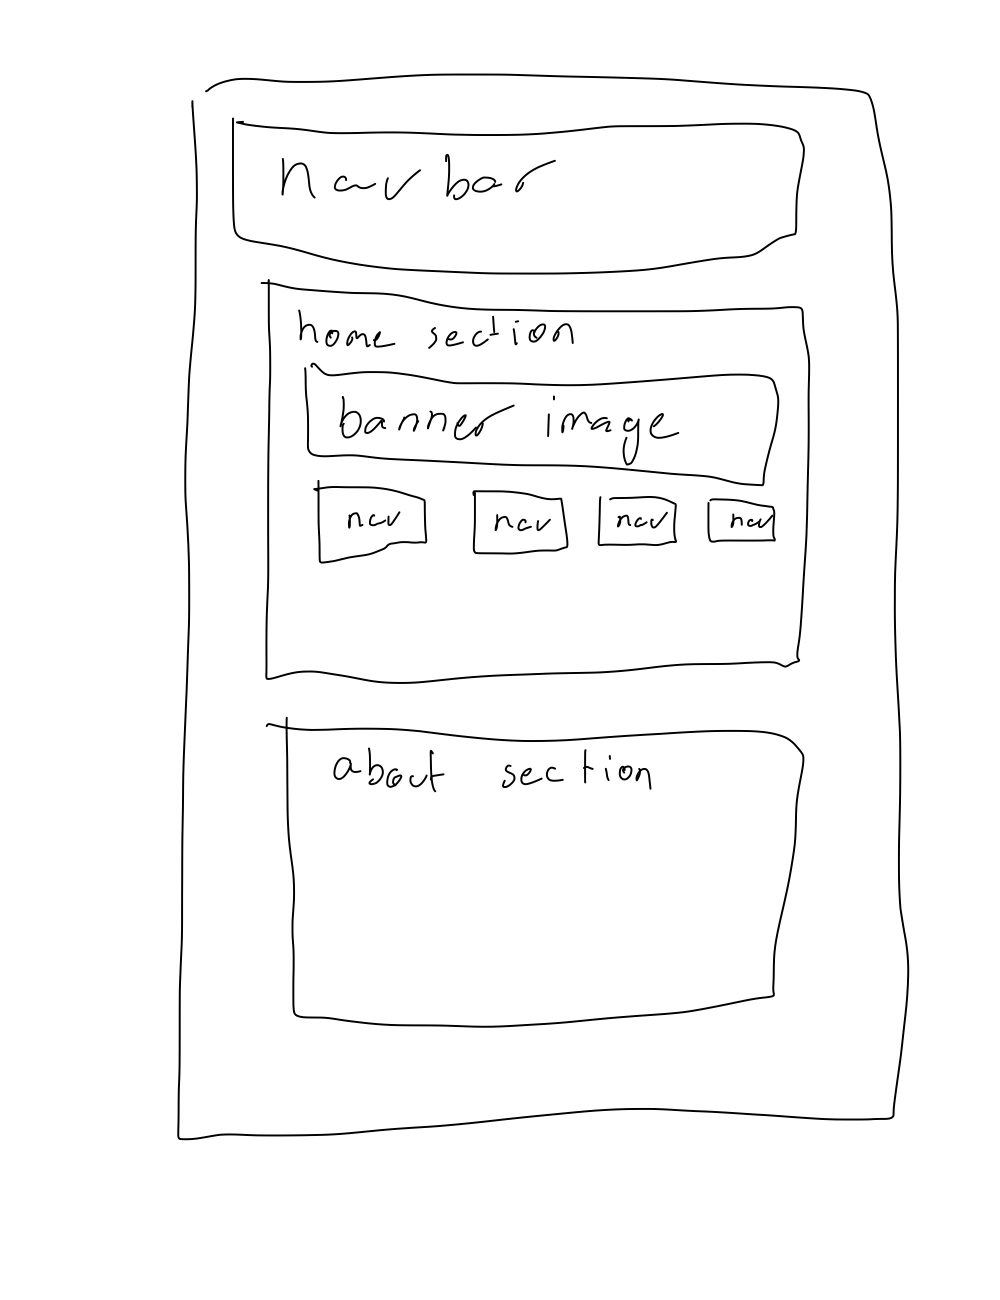 navbar
home section
banner image
nav nav nav nav
about section